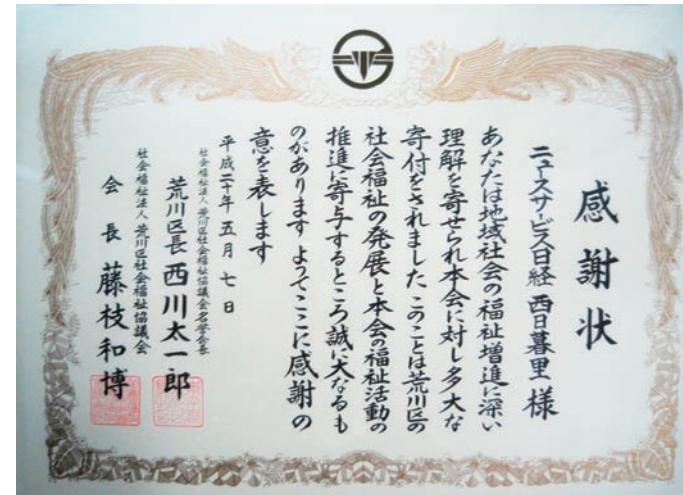 感謝状
ニュースサービス日経 西日暮里 様
あなたは地域社会の福祉増進に深い
理解を寄せられ本会に対し多大な
寄付をされました このことは荒川区の
社会福祉の発展と本会の福祉活動の
推進に寄与するところ誠に大なるも
のがあります よってここに感謝の
意を表します
平成二十年五月七日
社会福祉法人 荒川区社会福祉協議会名誉会長
荒川区長 西川太一郎
社会福祉法人 荒川区社会福祉協議会
会長 藤枝和博